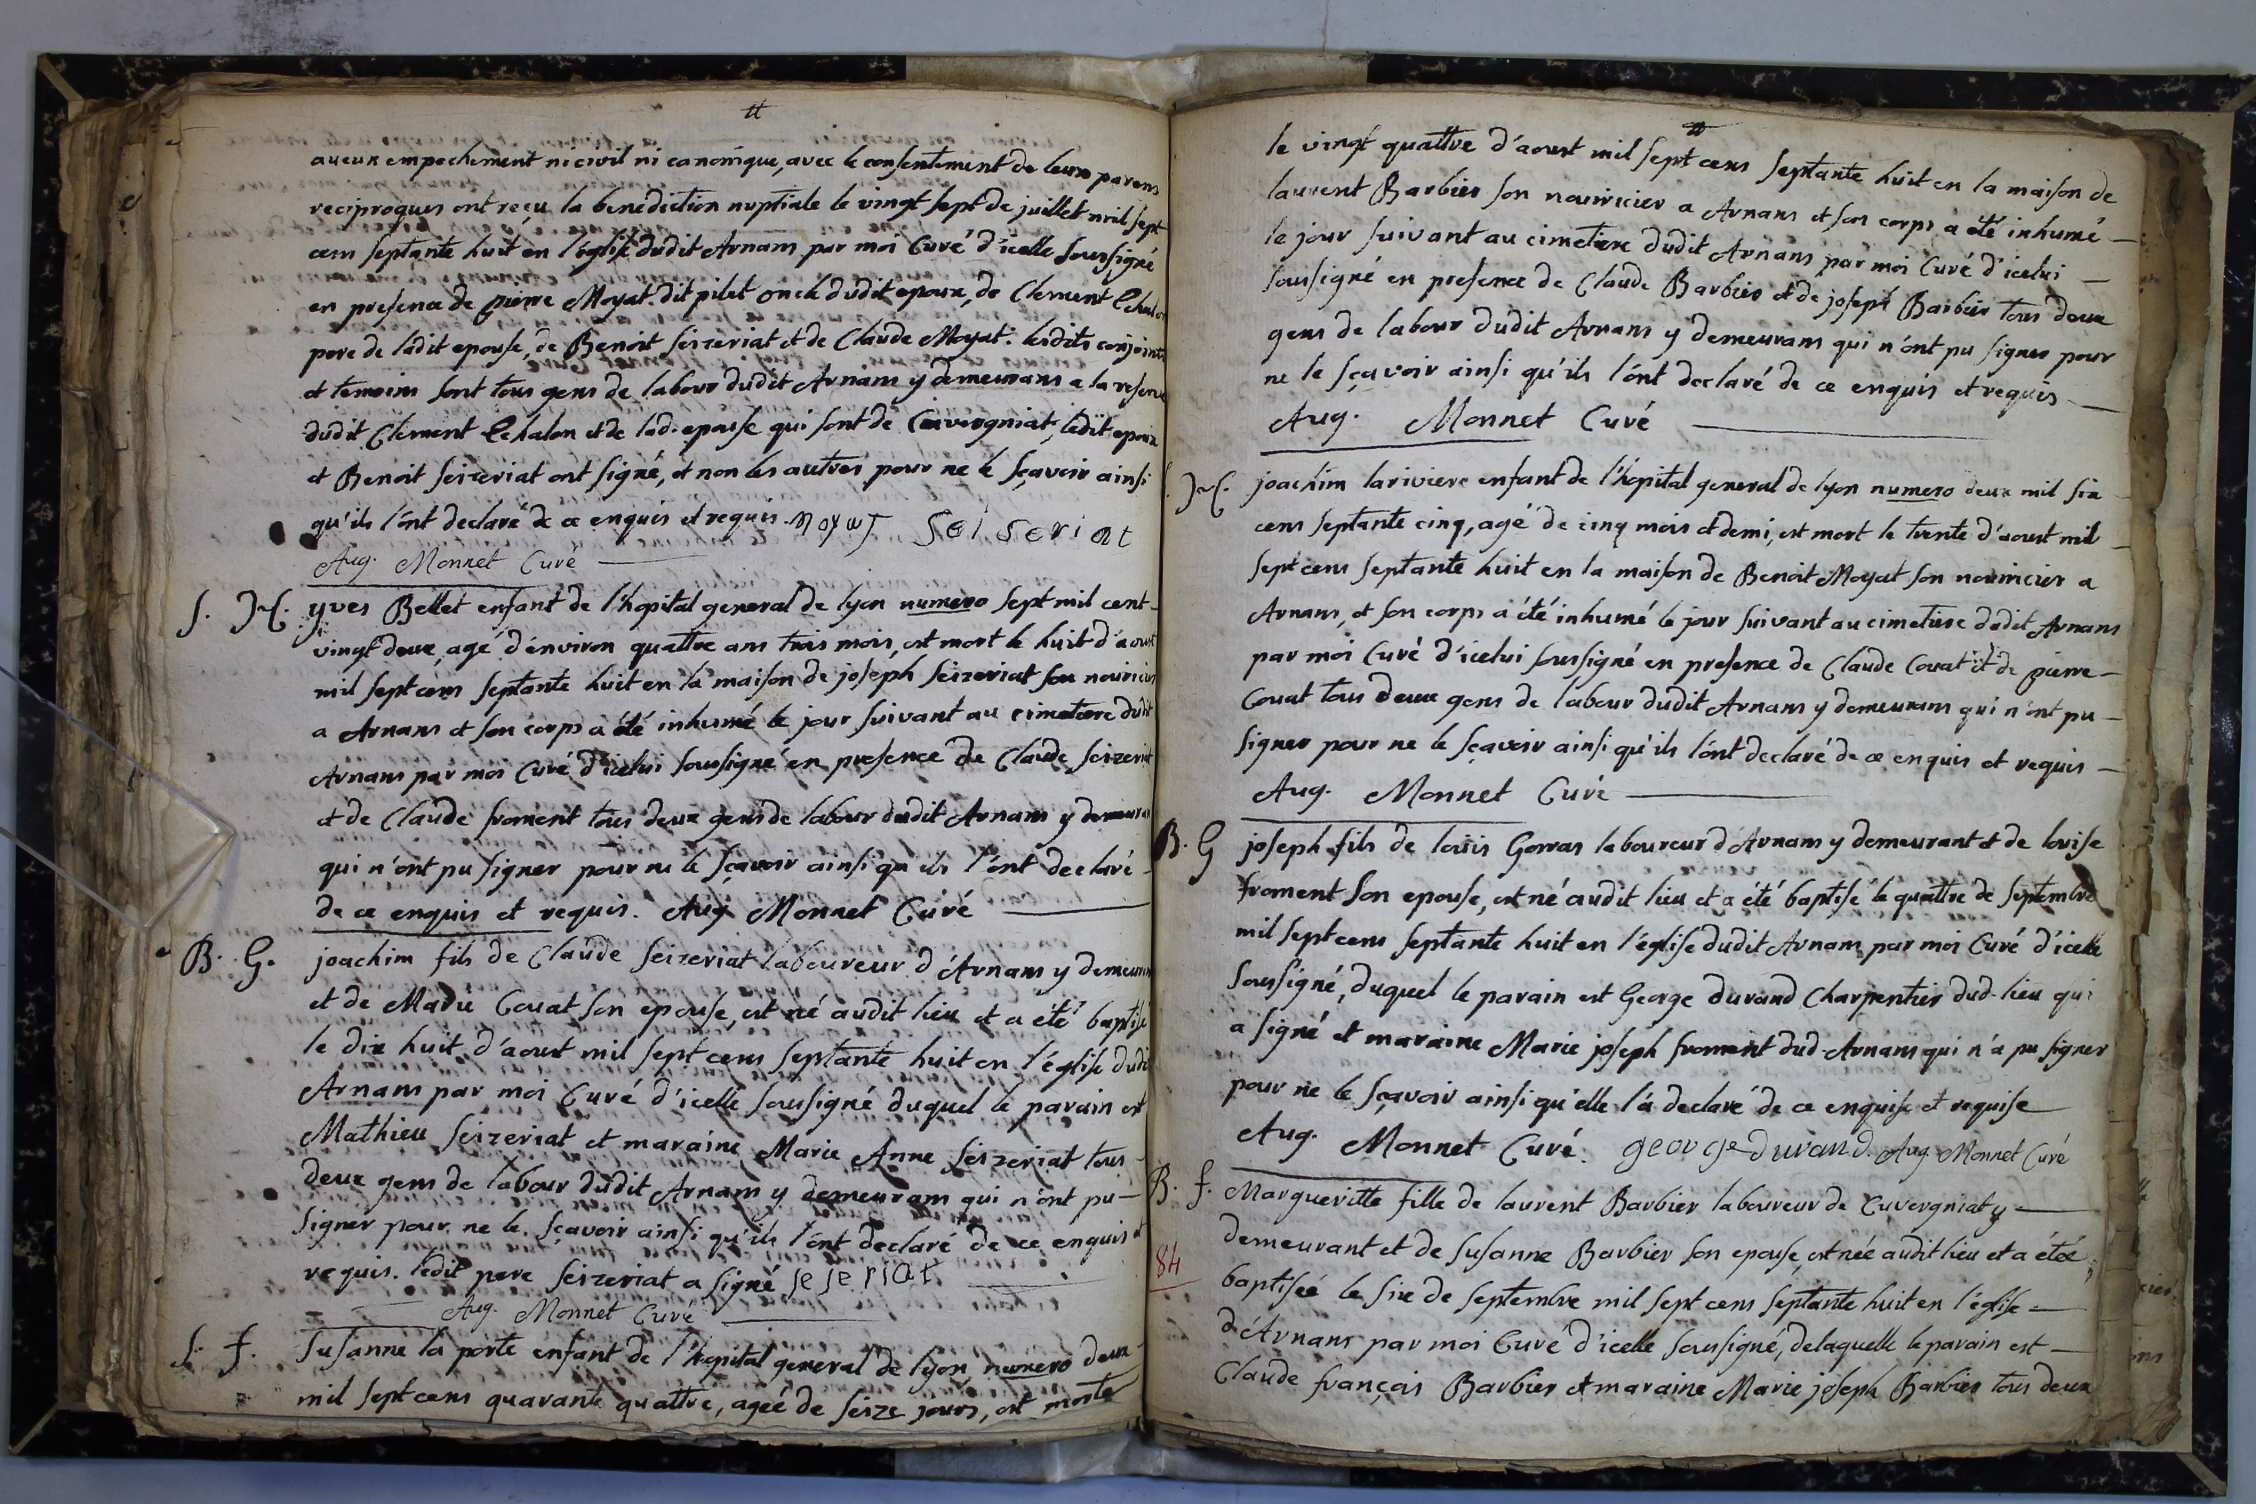 aucun empechement ni civil ni canonique, avec le consentement de leurs parens
reciproques ont reçu la benediction nuptiale le vingt sept de juillet mil sept
cens septante huit en l'église dudit Arnans par moi Curé d'icelle soussigné
en presence de pierre Moyat dit pilet oncle dudit epoux, de Clement Echalon
pere de ladit epouse, de Benoit seizeriat et de Claude Moyat. lesdits conjoints
et temoins sont tous gens de labour dudit Arnans y demeurans a la reserve
dudit Clement Echalon et de lad. epouse qui sont de Cuvergniat, ledit epoux
et Benoit seizeriat ont signé, et non les autres pour ne le sçavoir ainsi
qu'ils l'ont declaré de ce enquis et requis. moyat seiseriat
Aug. Monnet Curé
S. M. yves Bellet enfant de l'hopital general de lyon numero sept mil cent
vingt deux, agé d'environ quattre ans trois mois, est mort le huit d'aoust
mil sept cens septante huit en la maison de joseph seizeriat son nouricier
a Arnans et son corps a été inhumé le jour suivant au cimetiere dudit
Arnans par moi Curé d'icelui soussigné en presence de Claude seizeriat
et de Claude froment tous deux gens de labour dudit Arnans y demeurans
qui n'ont pu signer pour ne le sçavoir ainsi qu'ils l'ont declaré
de ce enquis et requis. Aug. Monnet Curé
B. G. joachim fils de Claude seizeriat laboureur d'Arnans y demeurant
et de Marie Couat son epouse, est né audit lieu et a été baptisé
le dix huit d'aoust mil sept cens septante huit en l'église dudit
Arnans par moi Curé d'icelle soussigné duquel le parain est
Mathieu seizeriat et maraine Marie Anne seizeriat tous
deux gens de labour dudit Arnans y demeurans qui n'ont pu
signer pour ne le sçavoir ainsi qu'ils l'ont declaré de ce enquis et
requis. ledit pere seizeriat a signé seseriat
Aug. Monnet Curé
S. f. Susanne la porte enfant de l'hopital general de lyon, numero deux
mil sept cens quarante quattre, ageé de seize jours, est morte
le vingt quattre d'aoust mil sept cens septante huit en la maison de
laurent Barbier son nouricier a Arnans et son corps a été inhumé
le jour suivant au cimetiere dudit Arnans par moi Curé d'icelui
soussigné en presence de Claude Barbier et de joseph Barbier tous deux
gens de labour dudit Arnans y demeurans qui n'ont pu signer pour
ne le sçavoir ainsi qu'ils l'ont declaré de ce enquis et requis
Aug. Monnet Curé
S. M. joachim lariviere enfant de l'hopital general de lyon numero deux mil six
cens septante cinq, agé de cinq mois et demi, est mort le trente d'aoust mil
sept cens septante huit en la maison de Benoit Moyat son nouricier a
Arnans, et son corps a été inhumé le jour suivant au cimetiere dudit Arnans
par moi Curé d'icelui soussigné en presence de Claude Couat et de pierre
Couat tous deux gens de labour dudit Arnans y demeurans qui n'ont pu
signer pour ne le sçavoir ainsi qu'ils l'ont declaré de ce enquis et requis
Aug. Monnet Curé
B. G joseph fils de loüis Gorras laboureur d'Arnans y demeurant et de louise
froment son epouse, est né audit lieu et a été baptisé le quattre de septembre
mil sept cens septante huit en l'église dudit Arnans par moi Curé d'icelle
soussigné, duquel le parain est George durand Charpentier dud. lieu qui
a signé et maraine Marie joseph froment dud. Arnans qui n'a pu signer
pour ne le sçavoir ainsi qu'elle l'a declaré de ce enquise et requise
Aug. Monnet Curé. george durand. Aug. Monnet Curé
B. f. Margueritte fille de laurent Barbier laboureur de Cuvergniat y
demeurant et de susanne Barbier son epouse, est née audit lieu et a étée
84
baptiseé le six de septembre mil sept cens septante huit en l'église
d'Arnans par moi Curé d'icelle soussigné, delaquelle le parain est
Claude françois Barbier et maraine Marie joseph Barbier tous deux